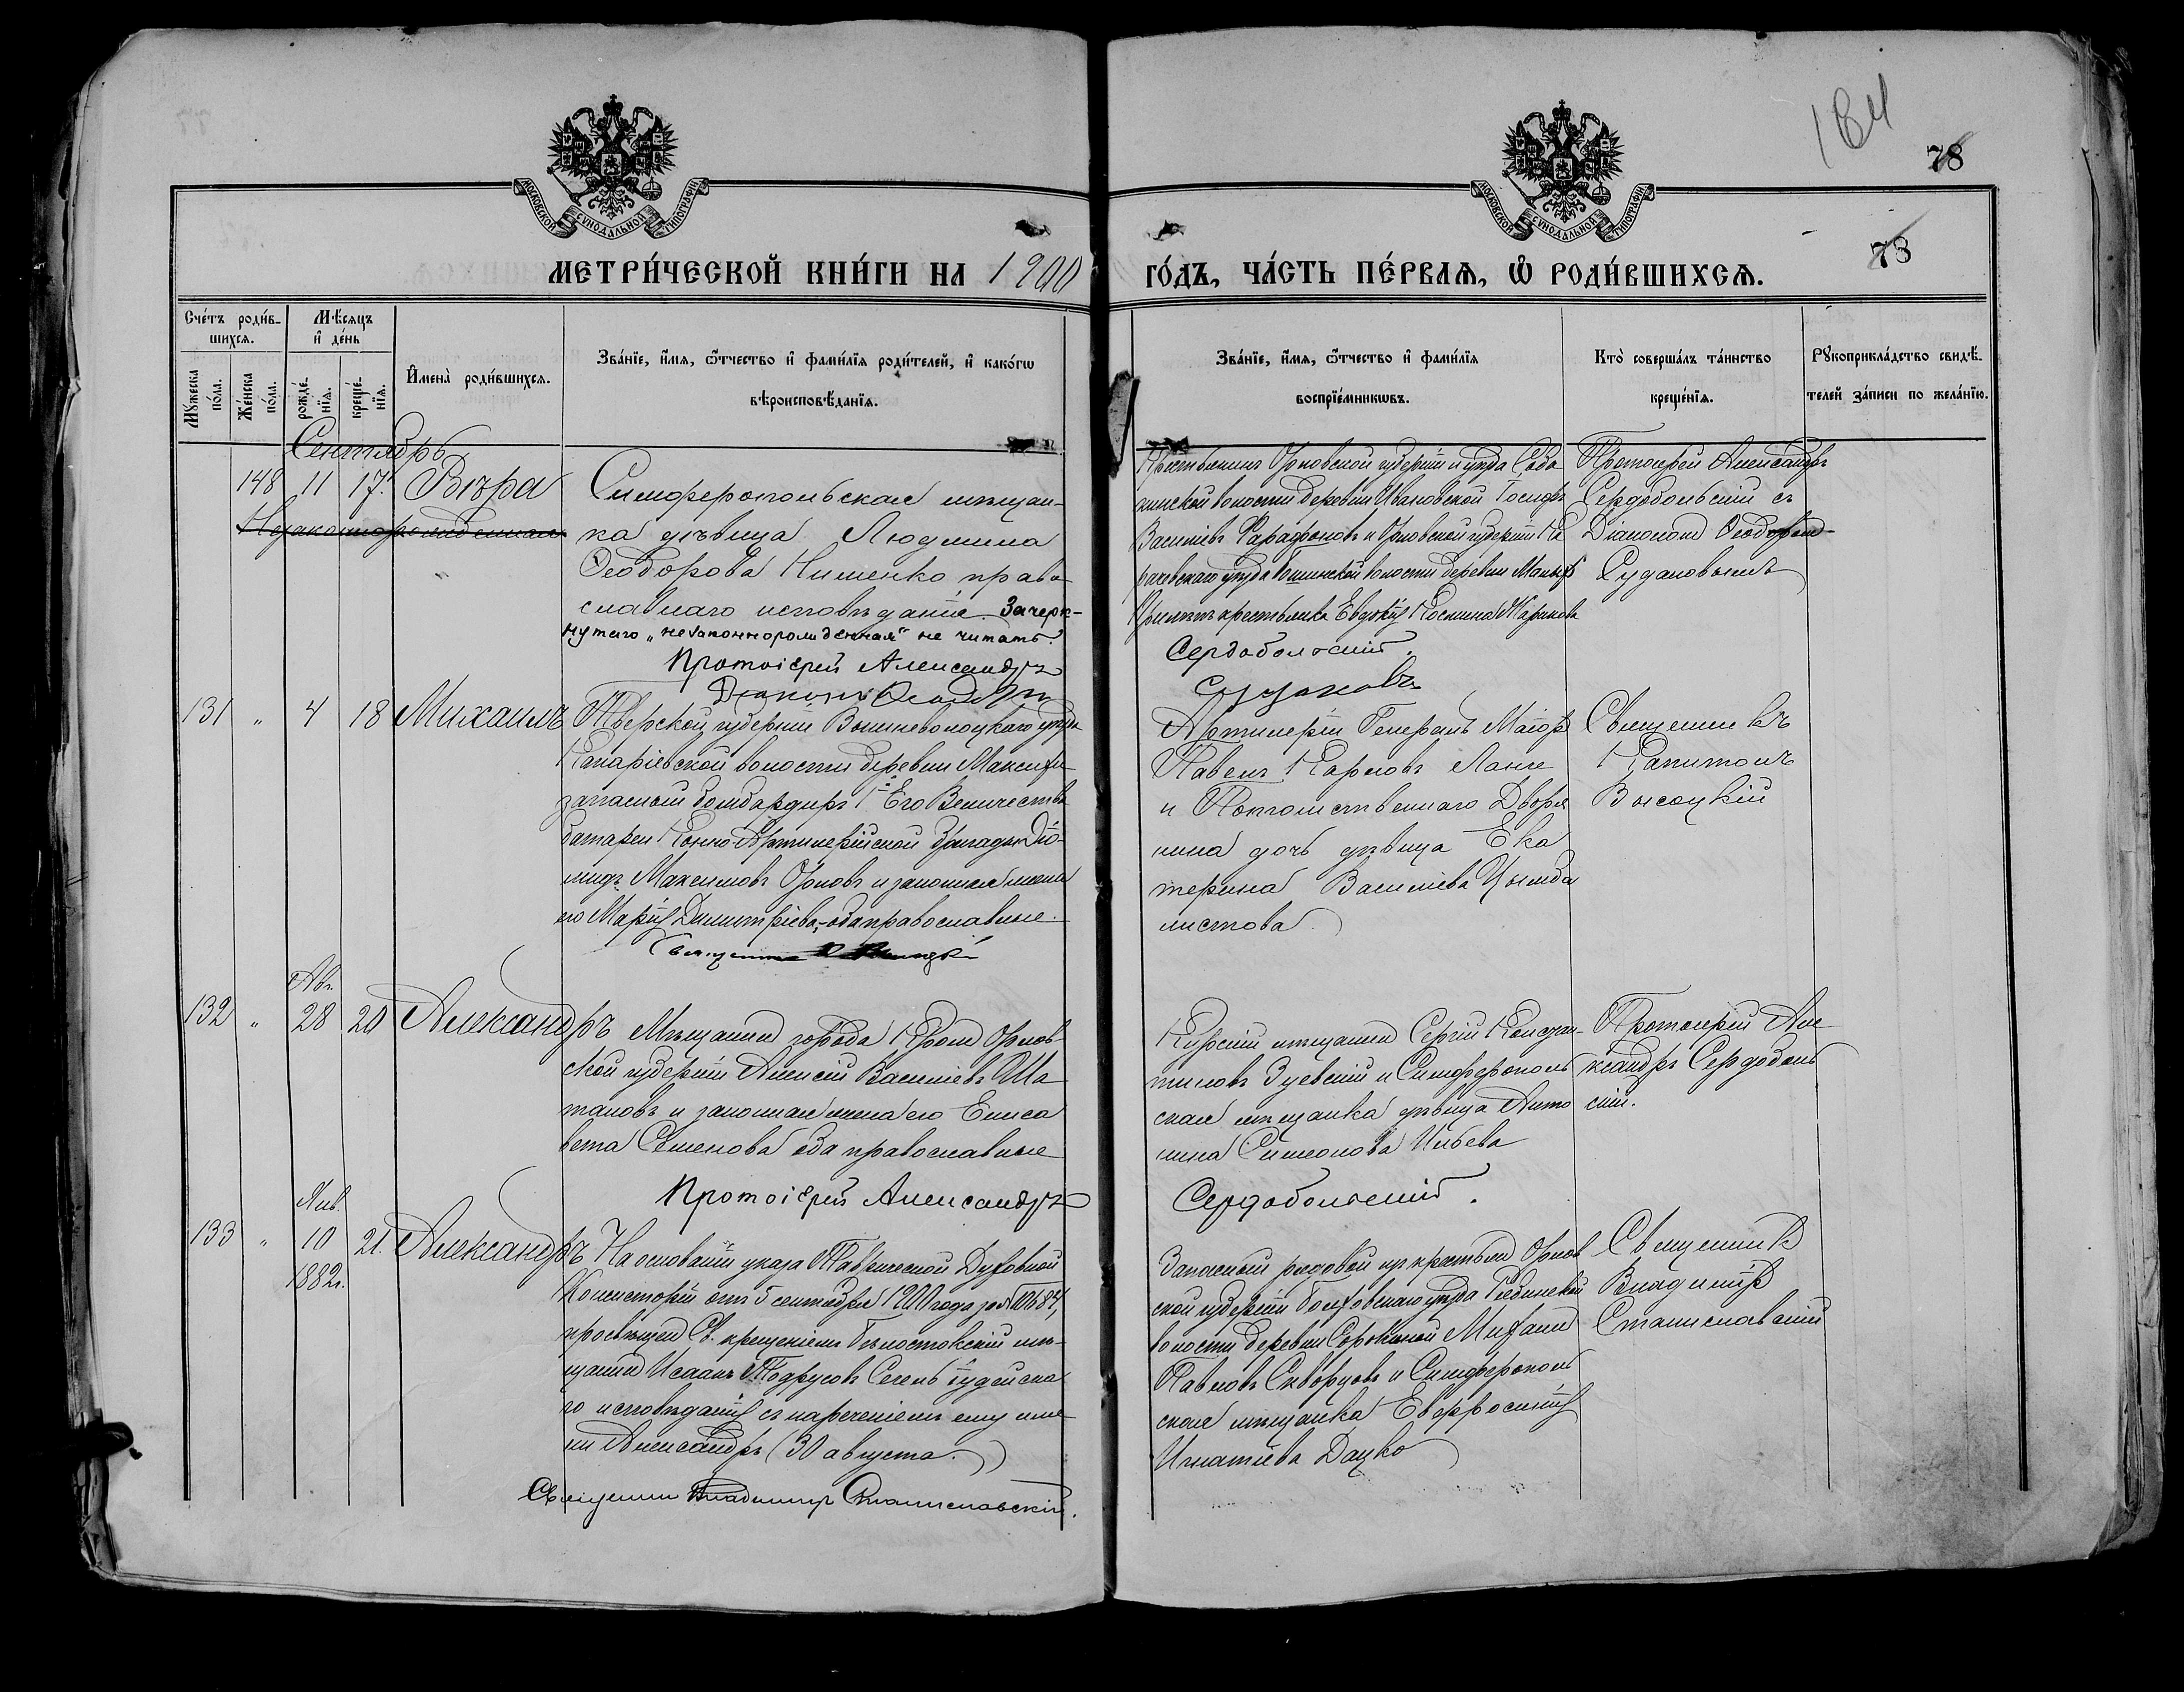 184
78
78
МОСКОВСКОЙ СѴНОДАЛЬНОЙ ТИПОГРАФІИ
МОСКОВСКОЙ СѴНОДАЛЬНОЙ ТИПОГРАФІИ
МЕТРИ́ЧЕСКОЙ КНИ́ГИ НА 1900
ГО́ДЪ, ЧА́СТЬ ПЕ́РВАЯ, Ѡ РОДИ́ВШИХСЯ.
Сче́тъ роди́в-
шихся.
Мѣ́сяцъ
и де́нь
Му́жеска по́ла.
Же́нска по́ла.
рожде́нїя.
креще́нїя.
Имена̀ роди́вшихся.
Зва́нїе, и́мя, ѻ҆́тчество и фами́лїя роди́телей, и како́гѡ
вѣроисповѣ́данїя.
Зва́нїе, и́мя, ѻ҆́тчество и фами́лїя
воспрїе́мникѡвъ.
Кто̀ соверша́лъ та́инство
креще́нїя.
Рꙋкоприкла́дство свидѣ́-
телей за́писи по жела́нїю.
Сентябрь
148 11 17. Вѣра
Незаконнорожденная
Симферопольская мѣщан-
ка дѣвица Людмила
Ѳеодорова Нименко право
славнаго исповѣданія. Зачерк-
нутаго „незаконнорожденная" не читать.
Протоіерей Александръ
Діаконъ Ѳеодоръ
Крестьянинъ Орловской губерніи и уѣзда
волости деревни Ивановской Іосифъ
Васильевъ Фарафоновъ и Орловской губерніи Ка
рачевскаго уѣзда волости деревни
крестьянка Евдокія Космина
Сердобольскій.
Судаковъ
Протоіерей Александръ
Сердобольскій съ
Діакономъ Ѳеодором-
Судаковымъ
131 " 4 18 Михаилъ
Тверской губерніи Вышневолоцкаго уѣзда
волости деревни
запасный бомбардиръ 1й Его Величества
батареи Конно-Артилерійской бригады Діо-
мидъ Максимовъ Орловъ и законная жена
его Марія Димитріева, оба православные.
Артилеріи Генералъ Маіоръ
Павелъ Карловъ Ланге
и Потомственнаго Дворя
нина дочь дѣвица Ека
терина Васильева
листова
Священникъ
Капитонъ
Высоцкій
Авг.
132 " 28 20 Александръ
Мѣщанинъ города Кромъ Орлов-
ской губерніи Алексій Васильевъ Ша
таловъ и законная жена его Елиса
вета Семенова оба православные
Протоіерей Александръ
Курскій мѣщанинъ Сергій Констан-
тиновъ Зуевскій и Симферополь
ская мѣщанка дѣвица Анто
нина Симеонова Ильева
Сердобольскій.
Протоіерей Але
ксандръ Сердоболь
скій.
Янв.
133 " 10 21. Александръ
1882г.
На основаніи указа Таврической Духовной
Консисторіи отъ 5 сентября 1900 года за № 10684,
просвѣщенъ Св. крещеніемъ Бѣлостокскій мѣ-
щанинъ Исаакъ Тодрусовъ Сегень іудейска
го исповѣданія съ нареченіемъ ему име
ни Александръ (30 августа.)
Священник Владимир Станиславскій.
Запасный рядовой изъ крестьянъ Орлов
ской губерніи Болховскаго уѣзда
волости деревни Сорокиной Михаилъ
Павловъ Скворцовъ и Симферополь
ская мѣщанка Евфросинія
Игнатіева Дацко
Священникъ
Владиміръ
Станиславскій